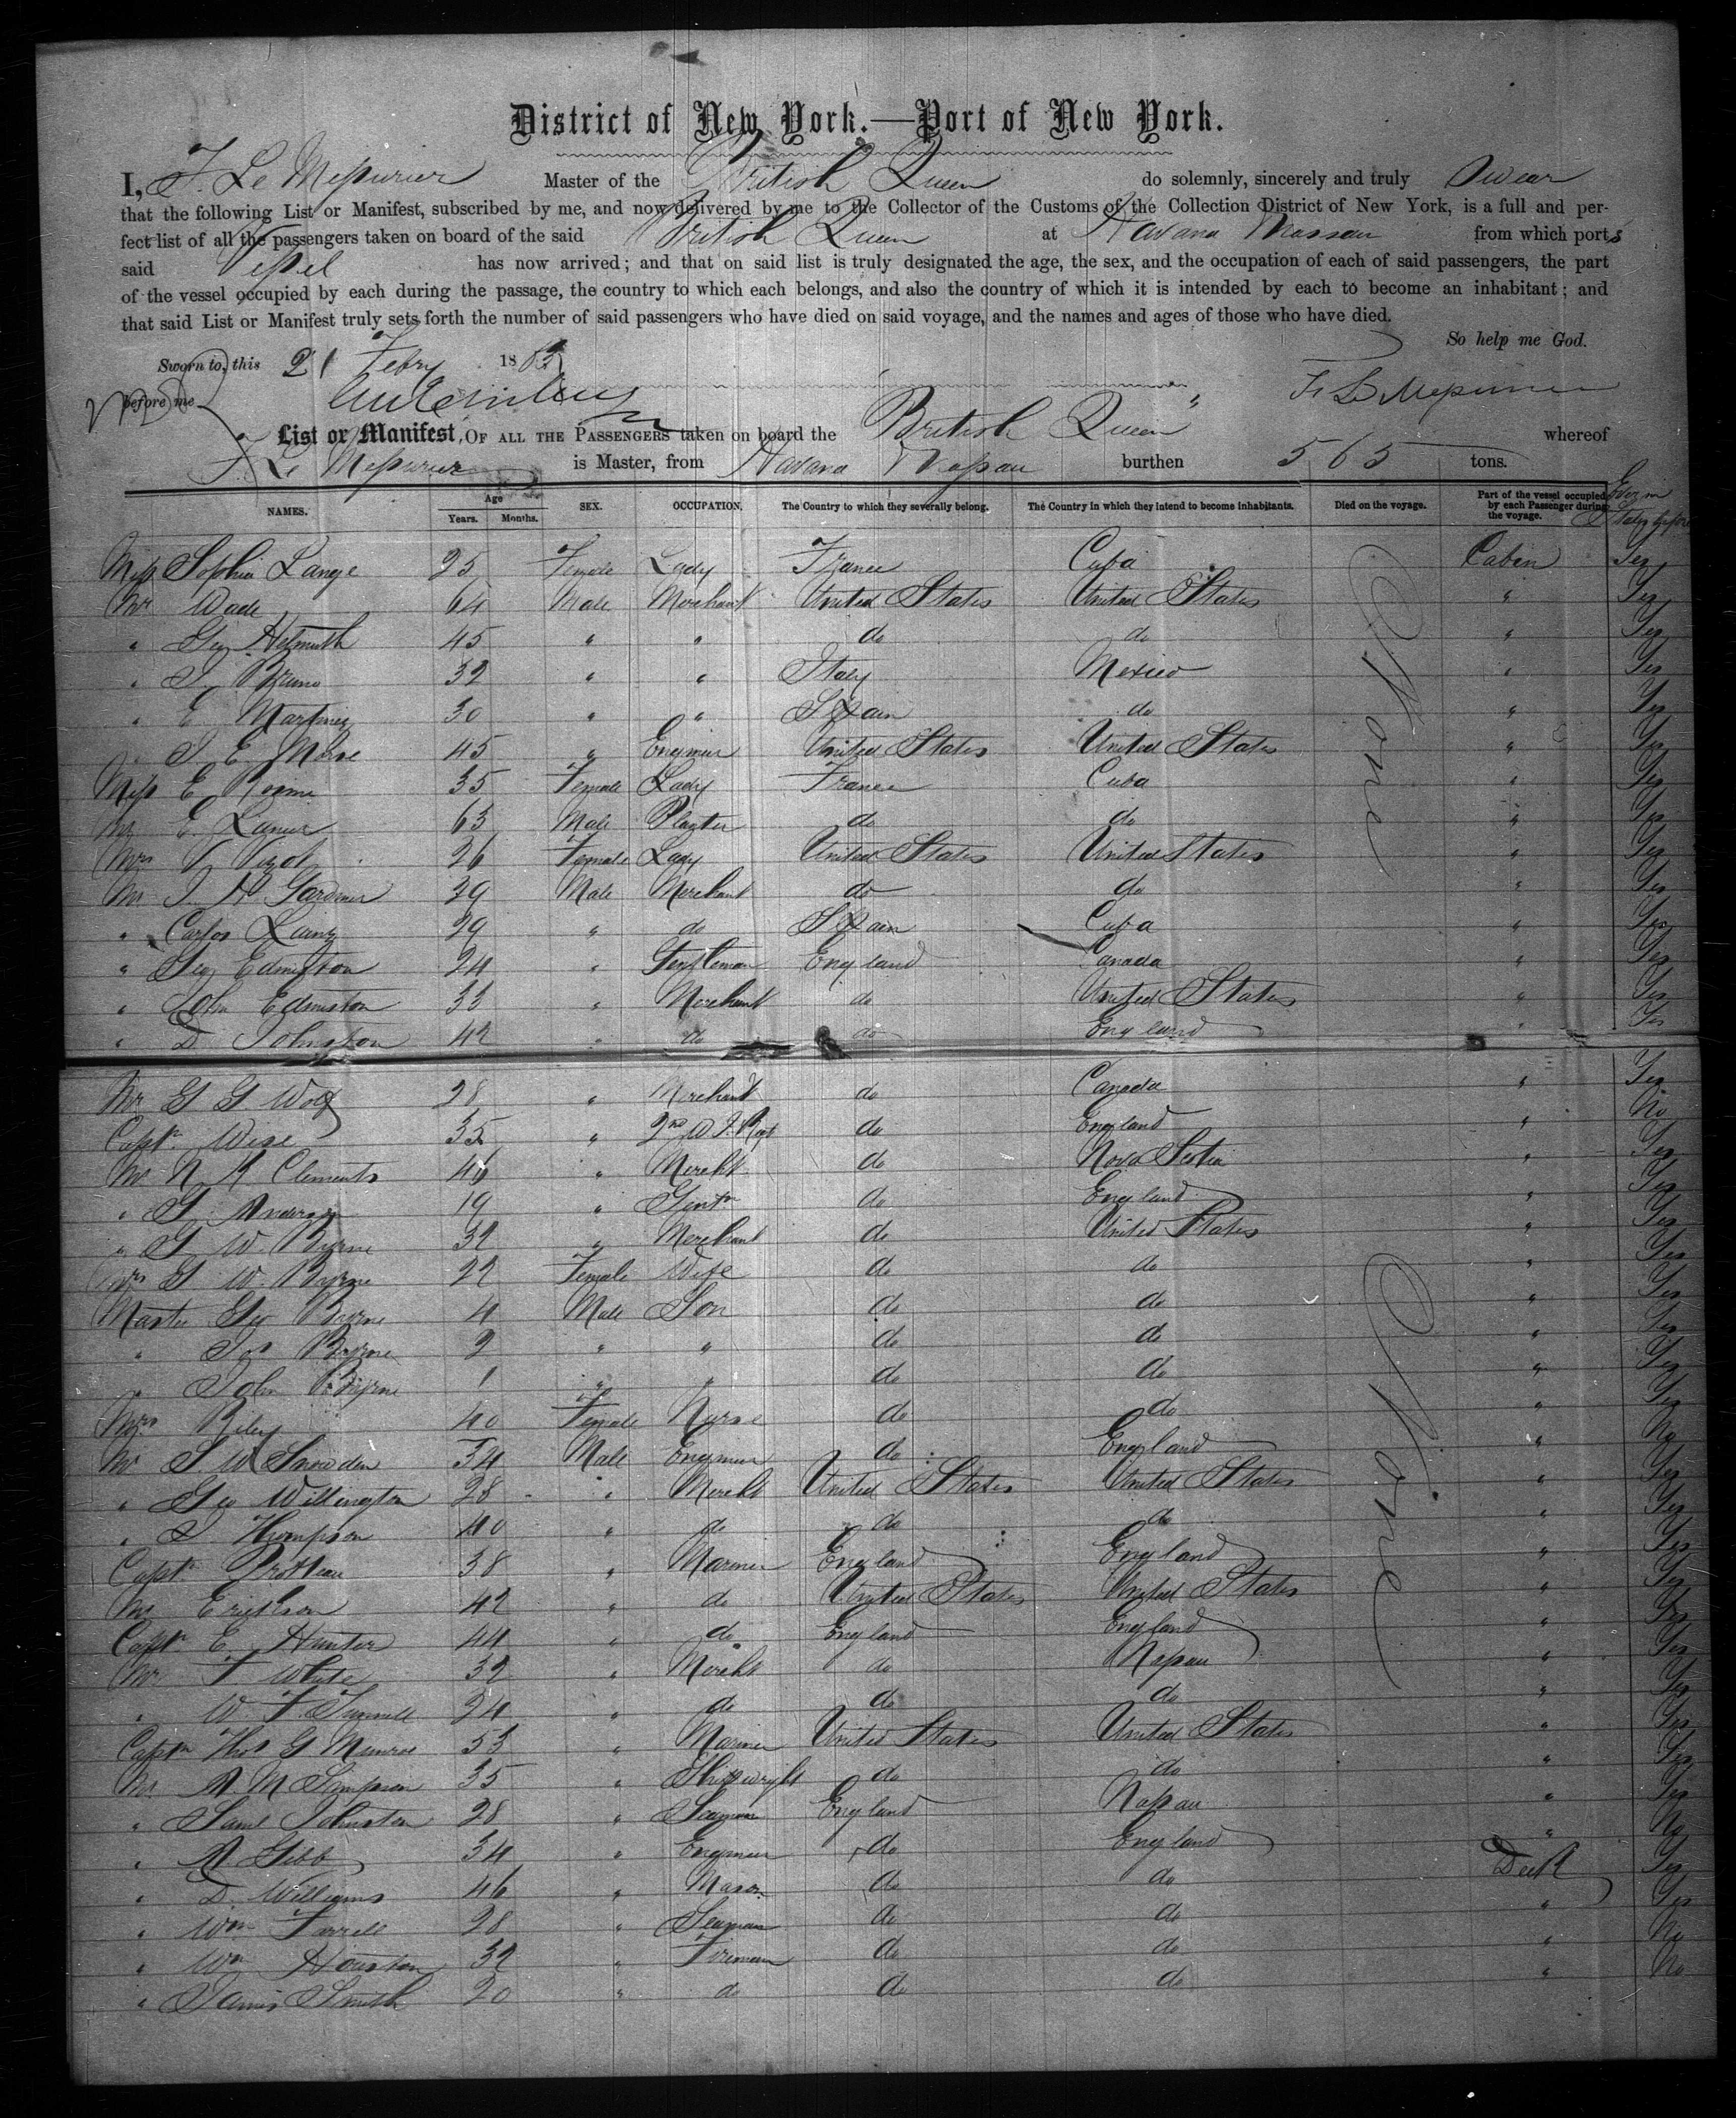 District of New York.—Port of New York.
I, F. Le Mesurier Master of the British Queen do solemnly, sincerely and truly Swear
that the following List or Manifest, subscribed by me, and now delivered by me to the Collector of the Customs of the Collection District of New York, is a full and per-
fect list of all the passengers taken on board of the said British Queen at Havana Nassau from which ports
said Vessel has now arrived; and that on said list is truly designated the age, the sex, and the occupation of each of said passengers, the part
of the vessel occupied by each during the passage, the country to which each belongs, and also the country of which it is intended by each to become an inhabitant; and
that said List or Manifest truly sets forth the number of said passengers who have died on said voyage, and the names and ages of those who have died.
So help me God.
Sworn to, this 21 Febry 1863
before me F. Le Mesurier
List or Manifest, OF ALL THE PASSENGERS taken on board the British Queen whereof
F. Le Mesurier is Master, from Havana Nassau burthen 565 tons.
NAMES. Age Years. Months. SEX. OCCUPATION. The Country to which they severally belong. The Country in which they intend to become inhabitants. Died on the voyage. Part of the vessel occupied by each Passenger during the voyage. Ever in States before
Miss Sophia Lange 25 Female Lady France Cuba Cabin Yes
Mr Wade 64 Male Merchant United States United States " Yes
" Geo Helmuth 45 " " do do " Yes
" Bruno 32 " " Italy Mexico " Yes
" E Martinez 30 " " Spain do " Yes
" E. Morse 45 " Engineer United States United States " Yes
Miss E 35 Female Lady France Cuba " Yes
Mr E. 63 Male Planter do do " Yes
Mrs 26 Female Lady United States United States " Yes
Mr J. H Gardner 39 Male Merchant do do " Yes
" Carlos 29 " do Spain Cuba " Yes
" Geo Edmiston 24 " Gentleman England Canada " Yes
" John Edmiston 33 " Merchant do United States " Yes
" D Johnston 42 " do do England " Yes
Mr G G. Wolf 28 " Merchant do Canada " Yes
Captn Wise 35 " 2nd W I. Regt do England " No
Mr N K Clements 46 " Mercht do Nova Scotia " Yes
" G Anderson 19 " Gentn do England " Yes
" G W. Byrne 32 " Merchant do United States " Yes
Mrs G W. Byrne 22 Female Wife do do " Yes
Master Geo Byrne 4 Male Son do do " Yes
" Jos Byrne 2 " " do do " Yes
" John Byrne 1 " " do do " Yes
Mrs Riley 40 Female Nurse do do " Yes
Mr W Snowden 34 Male Engineer do England " No
" Geo Willington 28 " Mercht United States United States " Yes
" Thompson 40 " do do do " Yes
Captn 38 " Mariner England England " Yes
Mr Erickson 42 " do United States United States " Yes
Captn E. Hunter 44 " do England England " Yes
Mr T White 32 " Mercht do Nassau " Yes
" W F. 24 " do do do " Yes
Captn Thos G Munroe 53 " Mariner United States United States " Yes
Mr A. M Simpson 35 " Shipwright do do " Yes
" Saml Johnston 28 " Seaman England Nassau " Yes
" A Gibb 34 " Engineer do England " No
" D. Williams 46 " Mason do do Deck Yes
" Wm Farrell 28 " Seaman do do " Yes
" Wm Houston 32 " Fireman do do " No
" James Smith 20 " do do do " No
None
None